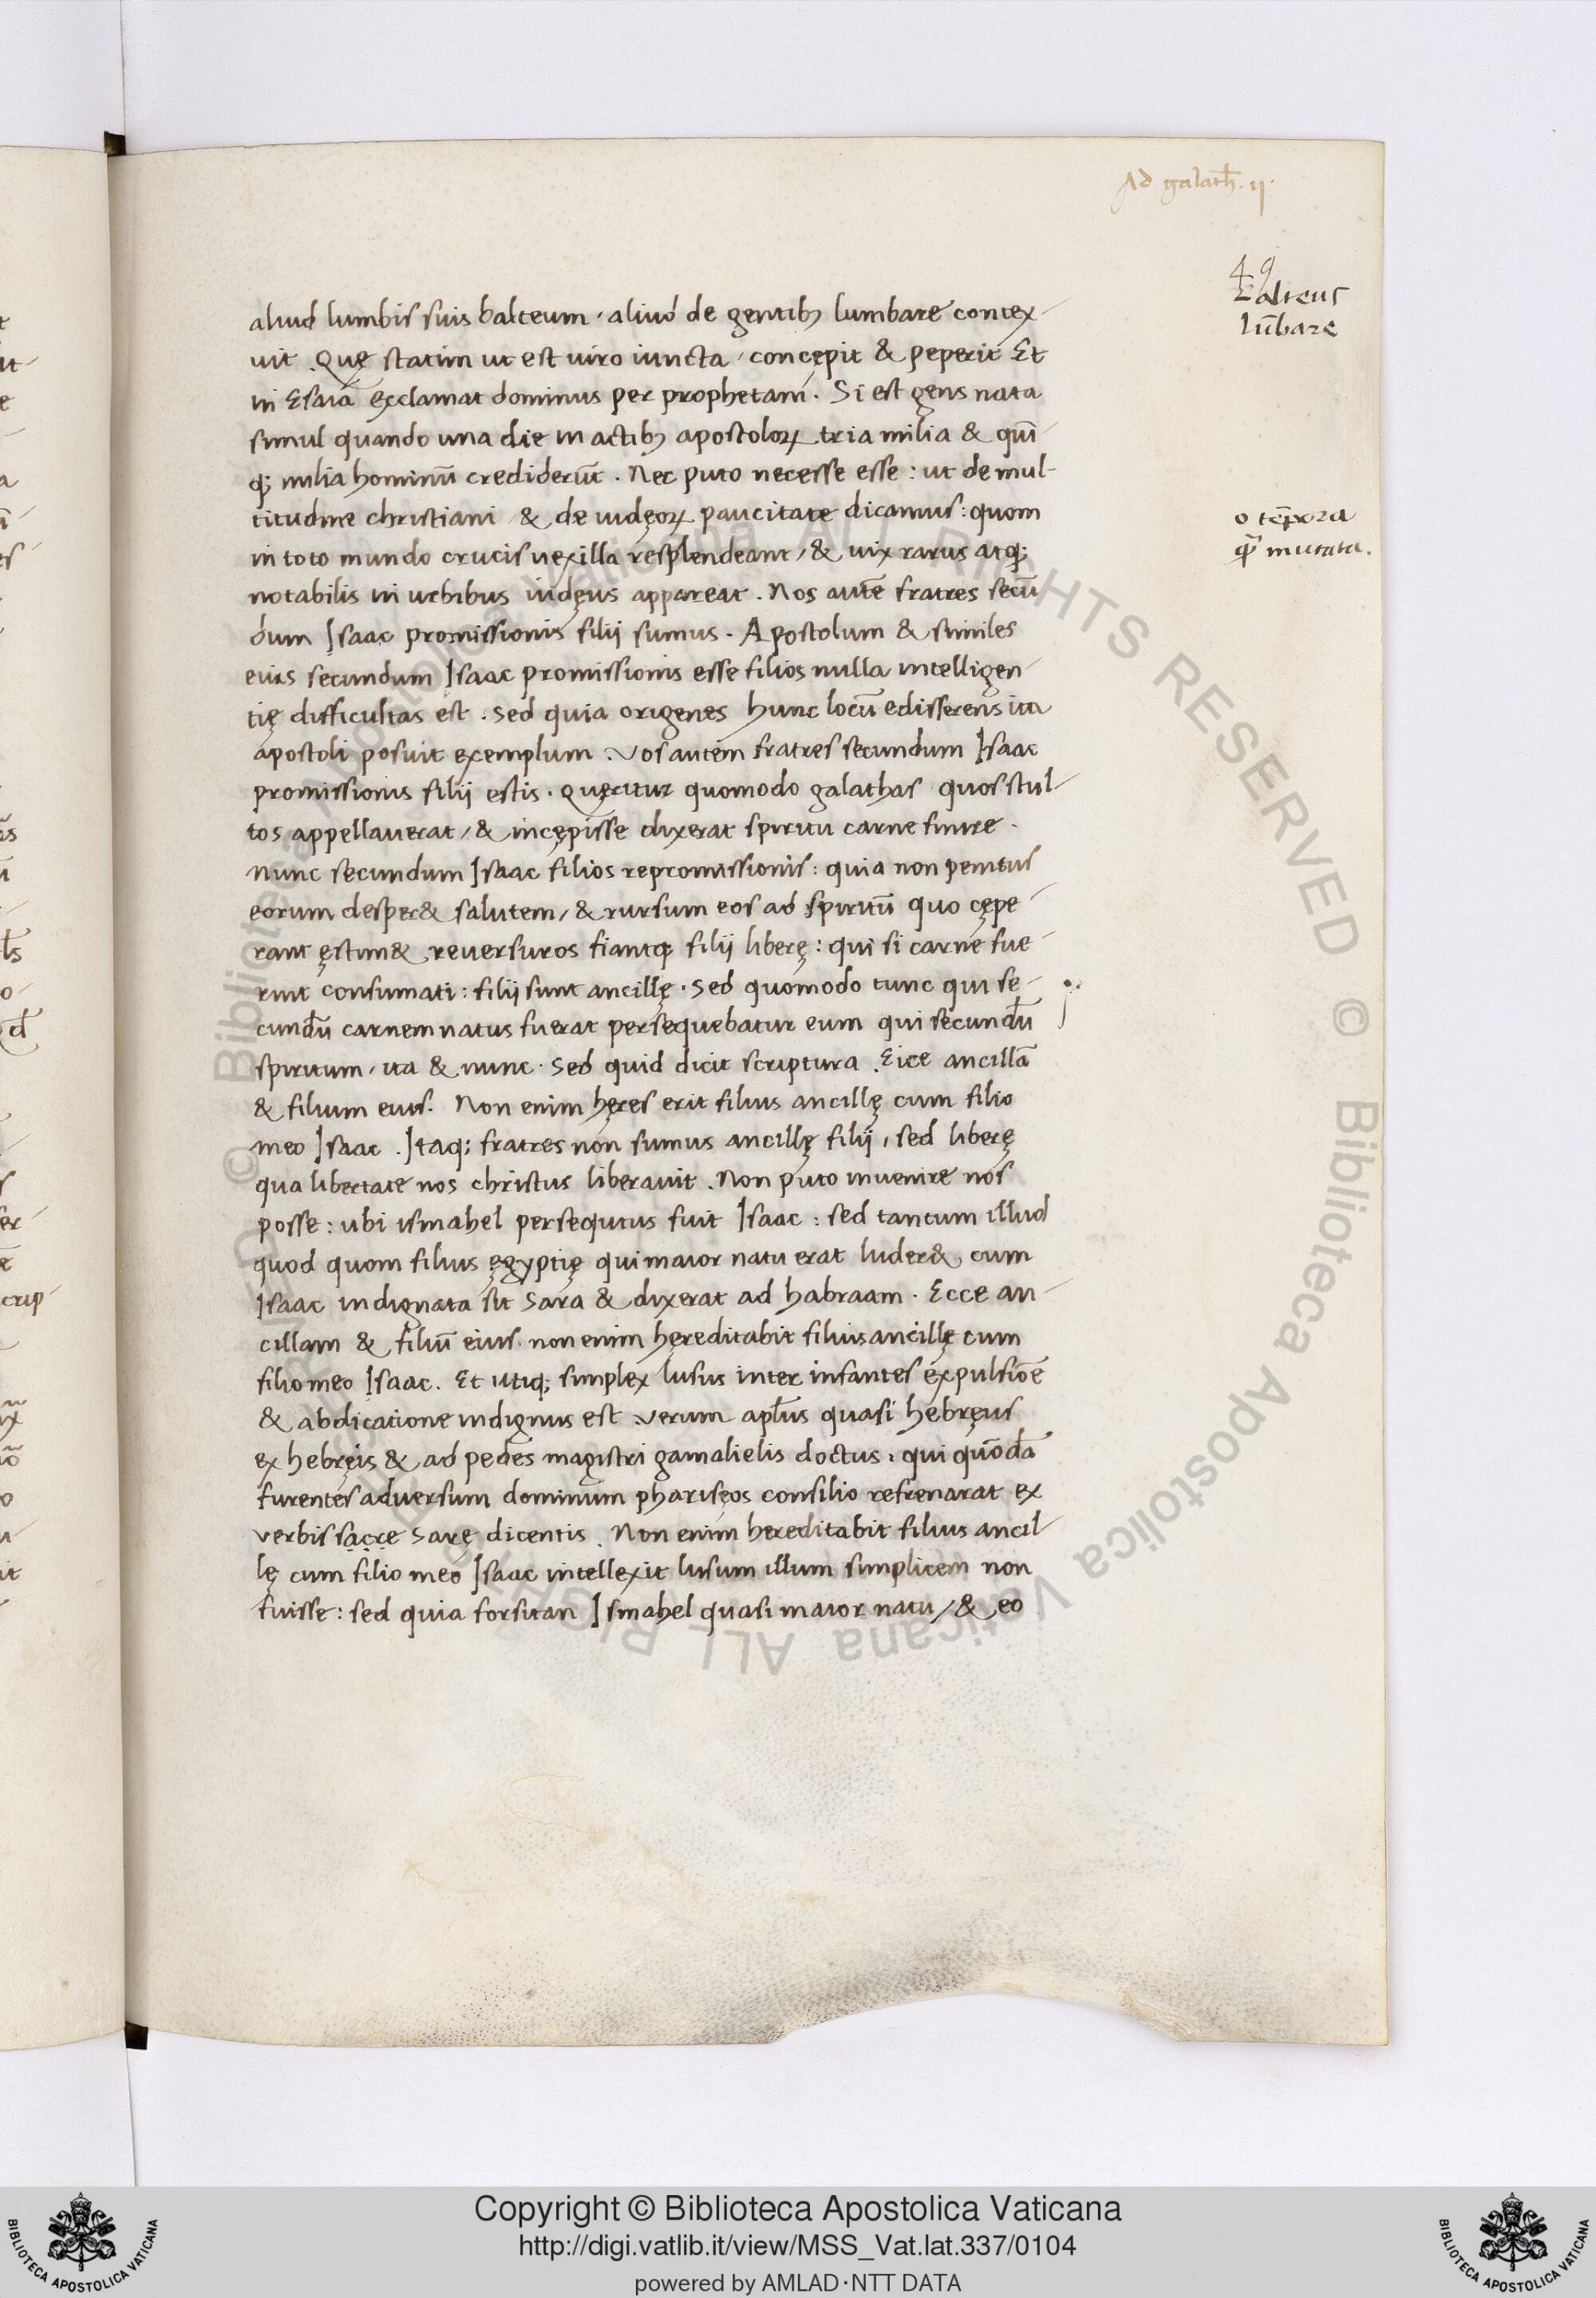 Ad galath̄. ij.
49
Balteus
lūbare
aliud lumbis suis balteum, aliud de gentibꝫ lumbare contex-
uit. Quę statim ut est uiro iuncta, concępit & peperit Et
in Esaiā exclamat dominus per prophetam. Si est gens nata
simul quando una die in actibꝫ apostoloꝝ tria milia & quī-
qꝫ milia hominū crediderūt. Nec puto necesse esse: ut de mul-
titudine christiani & de iudęoꝝ paucitate dicamus: quom
o tēpora
in toto mundo crucis uexilla resplendeant, & uix rarus atqꝫ
ꝙ̄ mutata.
notabilis in urbibus iudęus appareat. Nos autē fratres secū
dum Isaac promissionis filij sumus. Apostolum & similes
eius secundum Isaac promissionis esse filios nulla intelligen-
tię difficultas est. Sed quia origenes hunc locū edisserens ita
apostoli posuit exemplum. Vos autem fratres secundum Isaac
promissionis filij estis. Quęritur quomodo galathas quos stul-
tos appellauerat, & incępisse dixerat spiritu carne finire.
Nunc secundum Isaac filios repromissionis: quia non penitus
eorum desper& salutem, & rursum eos ad spiritū quo cępe-
rant ęstim& reuersuros fiantqꝫ filij liberę: qui si carne fue-
rint consumati: filij sunt ancillę. Sed quomodo tunc qui se-
cundū carnem natus fuerat persequebatur eum qui secundū
spiritum, ita & nunc. Sed quid dicit scriptura. Eice ancillā
& filium eius. Non enim hęres erit filius ancillę cum filio
meo Isaac. Itaqꝫ fratres non sumus ancillę filij, sed liberę
qua libertate nos christus liberauit. Non puto inuenire nos
posse: ubi ismahel persequutus fuit Isaac: sed tantum illud
quod quom filius ęgyptię qui maior natu erat luder& cum
Isaac indignata sit Sara & dixerat ad habraam. Ecce an-
cillam & filiū eius. non enim hęreditabit filius ancillę cum
filio meo Isaac. Et utiqꝫ simplex lusus inter infantes expulsiōe
& abdicatione indignus est. Verum apl̄us quasi hebręus
ex hebręis & ad pedes magistri gamalielis doctus, qui quōdā
furentes aduersum dominum pharisęos consilio refrenarat ex
verbis sacre Sarę dicentis. Non enim hereditabit filius ancil-
lę cum filio meo Isaac intellexit lusum illum simplicem non
fuisse: sed quia forsitan Ismahel quasi maior natu, & eo
© Biblioteca Apostolica Vaticana ALL RIGHTS RESERVED
© Biblioteca Apostolica Vaticana ALL RIGHTS RESERVED
Copyright © Biblioteca Apostolica Vaticana
http://digi.vatlib.it/view/MSS_Vat.lat.337/0104
powered by AMLAD·NTT DATA
BIBLIOTECA APOSTOLICA VATICANA
BIBLIOTECA APOSTOLICA VATICANA